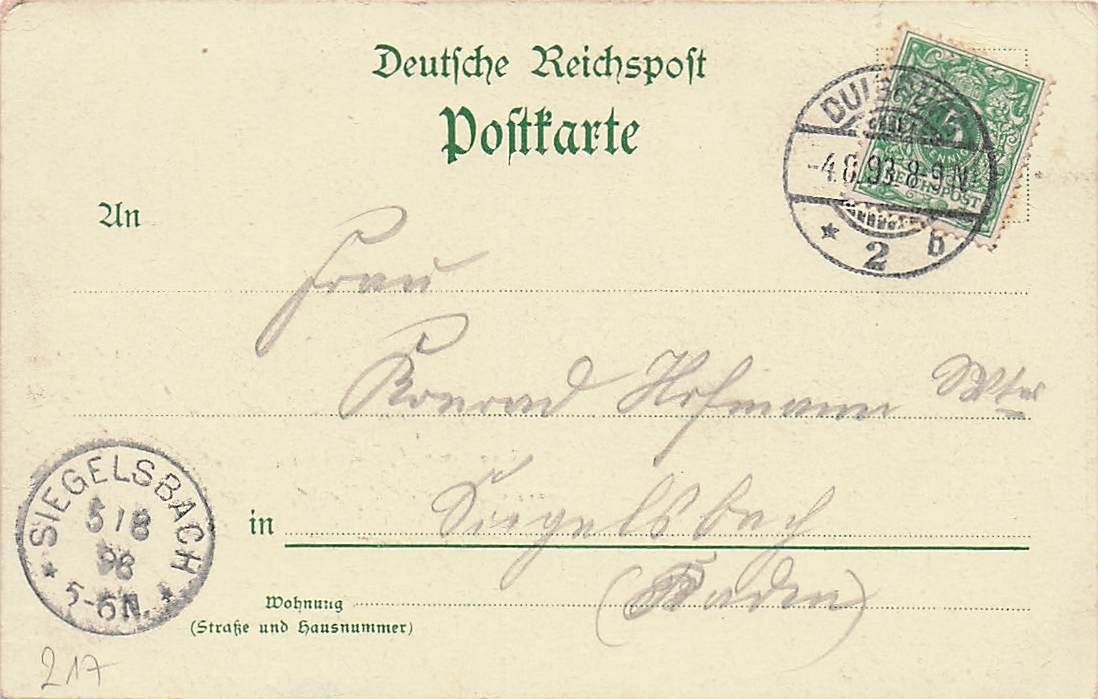 Deutsche Reichspost
Postkarte
DUISBURG
-4.8.98.8-9N.
* 2 b
REICHSPOST
5
An
Frau
Konrad Hofmann Wtw
in Siegelsbach
(Baden)
Wohnung
(Straße und Hausnummer)
SIEGELSBACH
5/8
98
* 5-6N. *
217